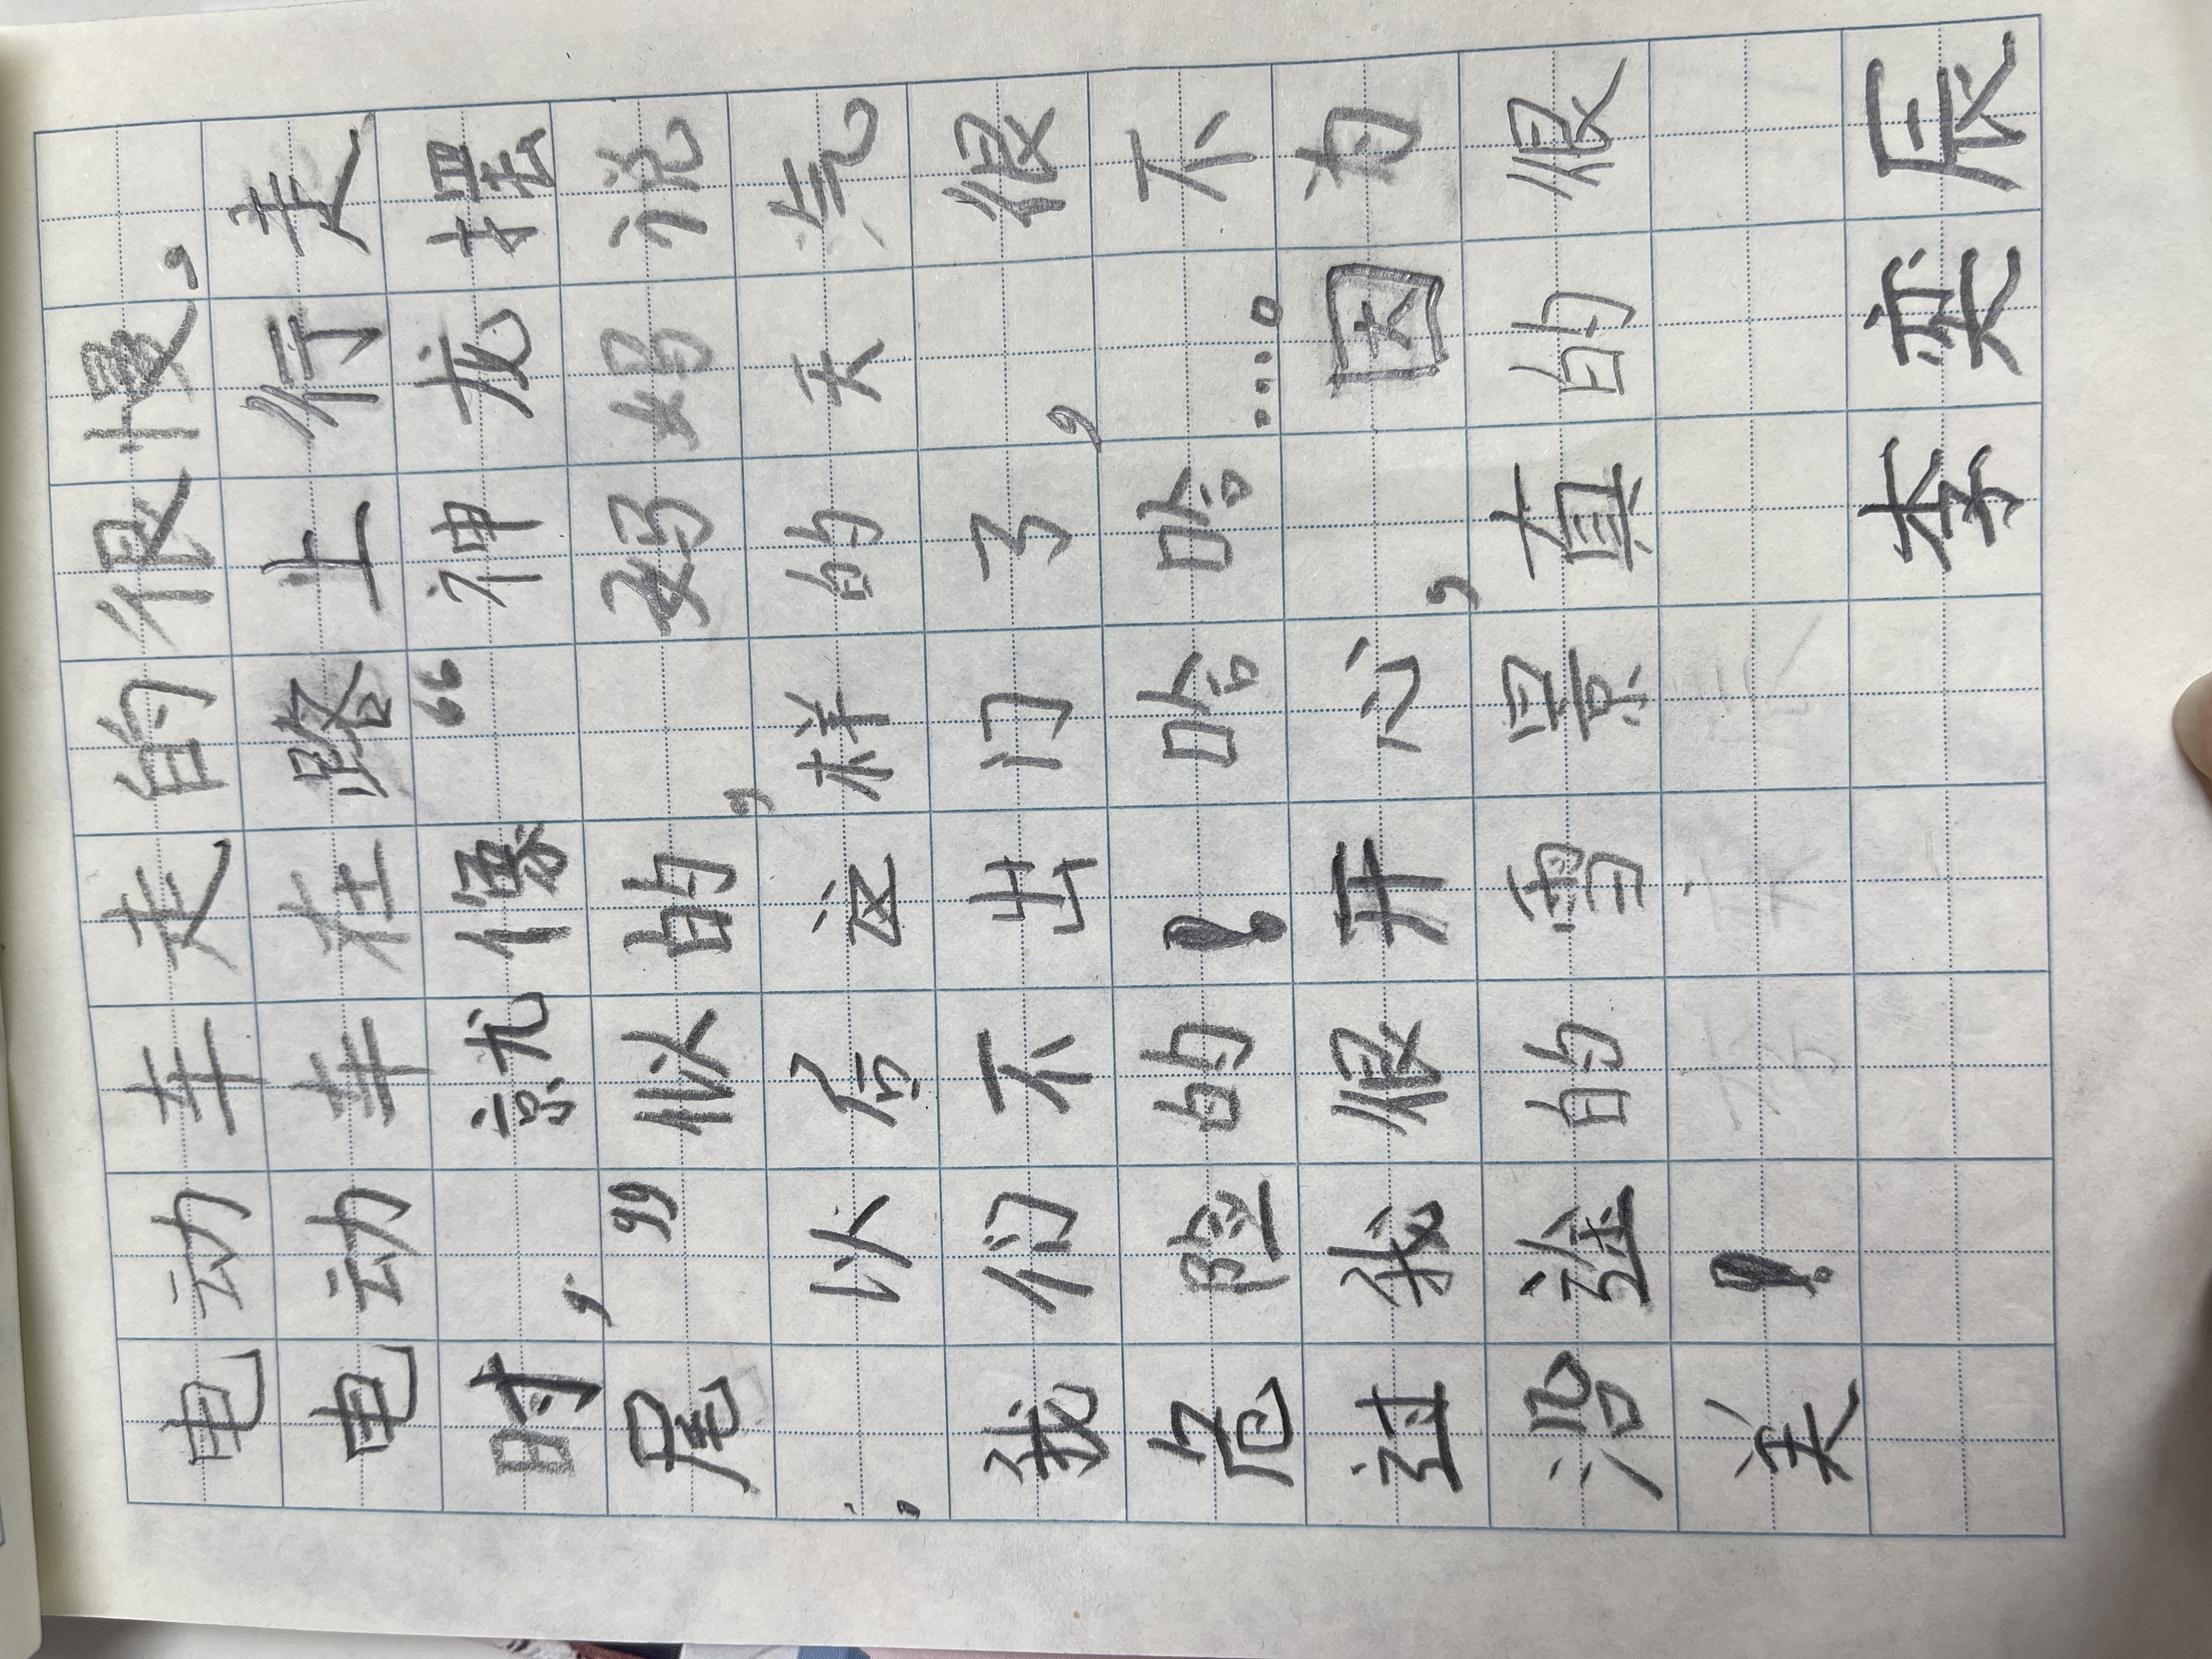 电动车走的很慢。
电动车在路上行走
时，就像“神龙摆
尾”似的，妈妈说
：以后这样的天气
我们不出门了，很
危险的！哈哈…。不
过我很开心，因为
沿途的雪景真的很
美！
李奕辰